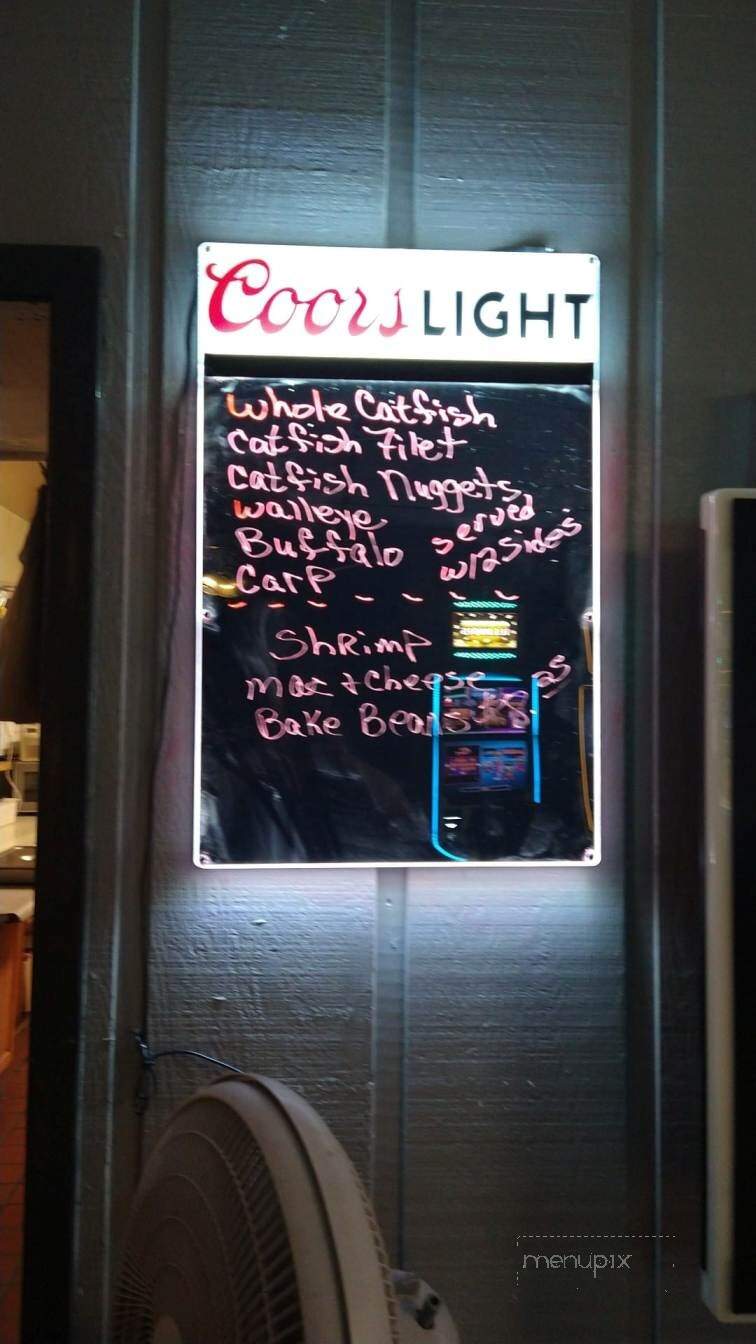 Coors LIGHT
Whole Catfish
Catfish Filet
Catfish Nuggets
Walleye
Buffalo
Carp
served
w/2 sides
Shrimp
Mac + Cheese
Bake Beans $8.25
menupix